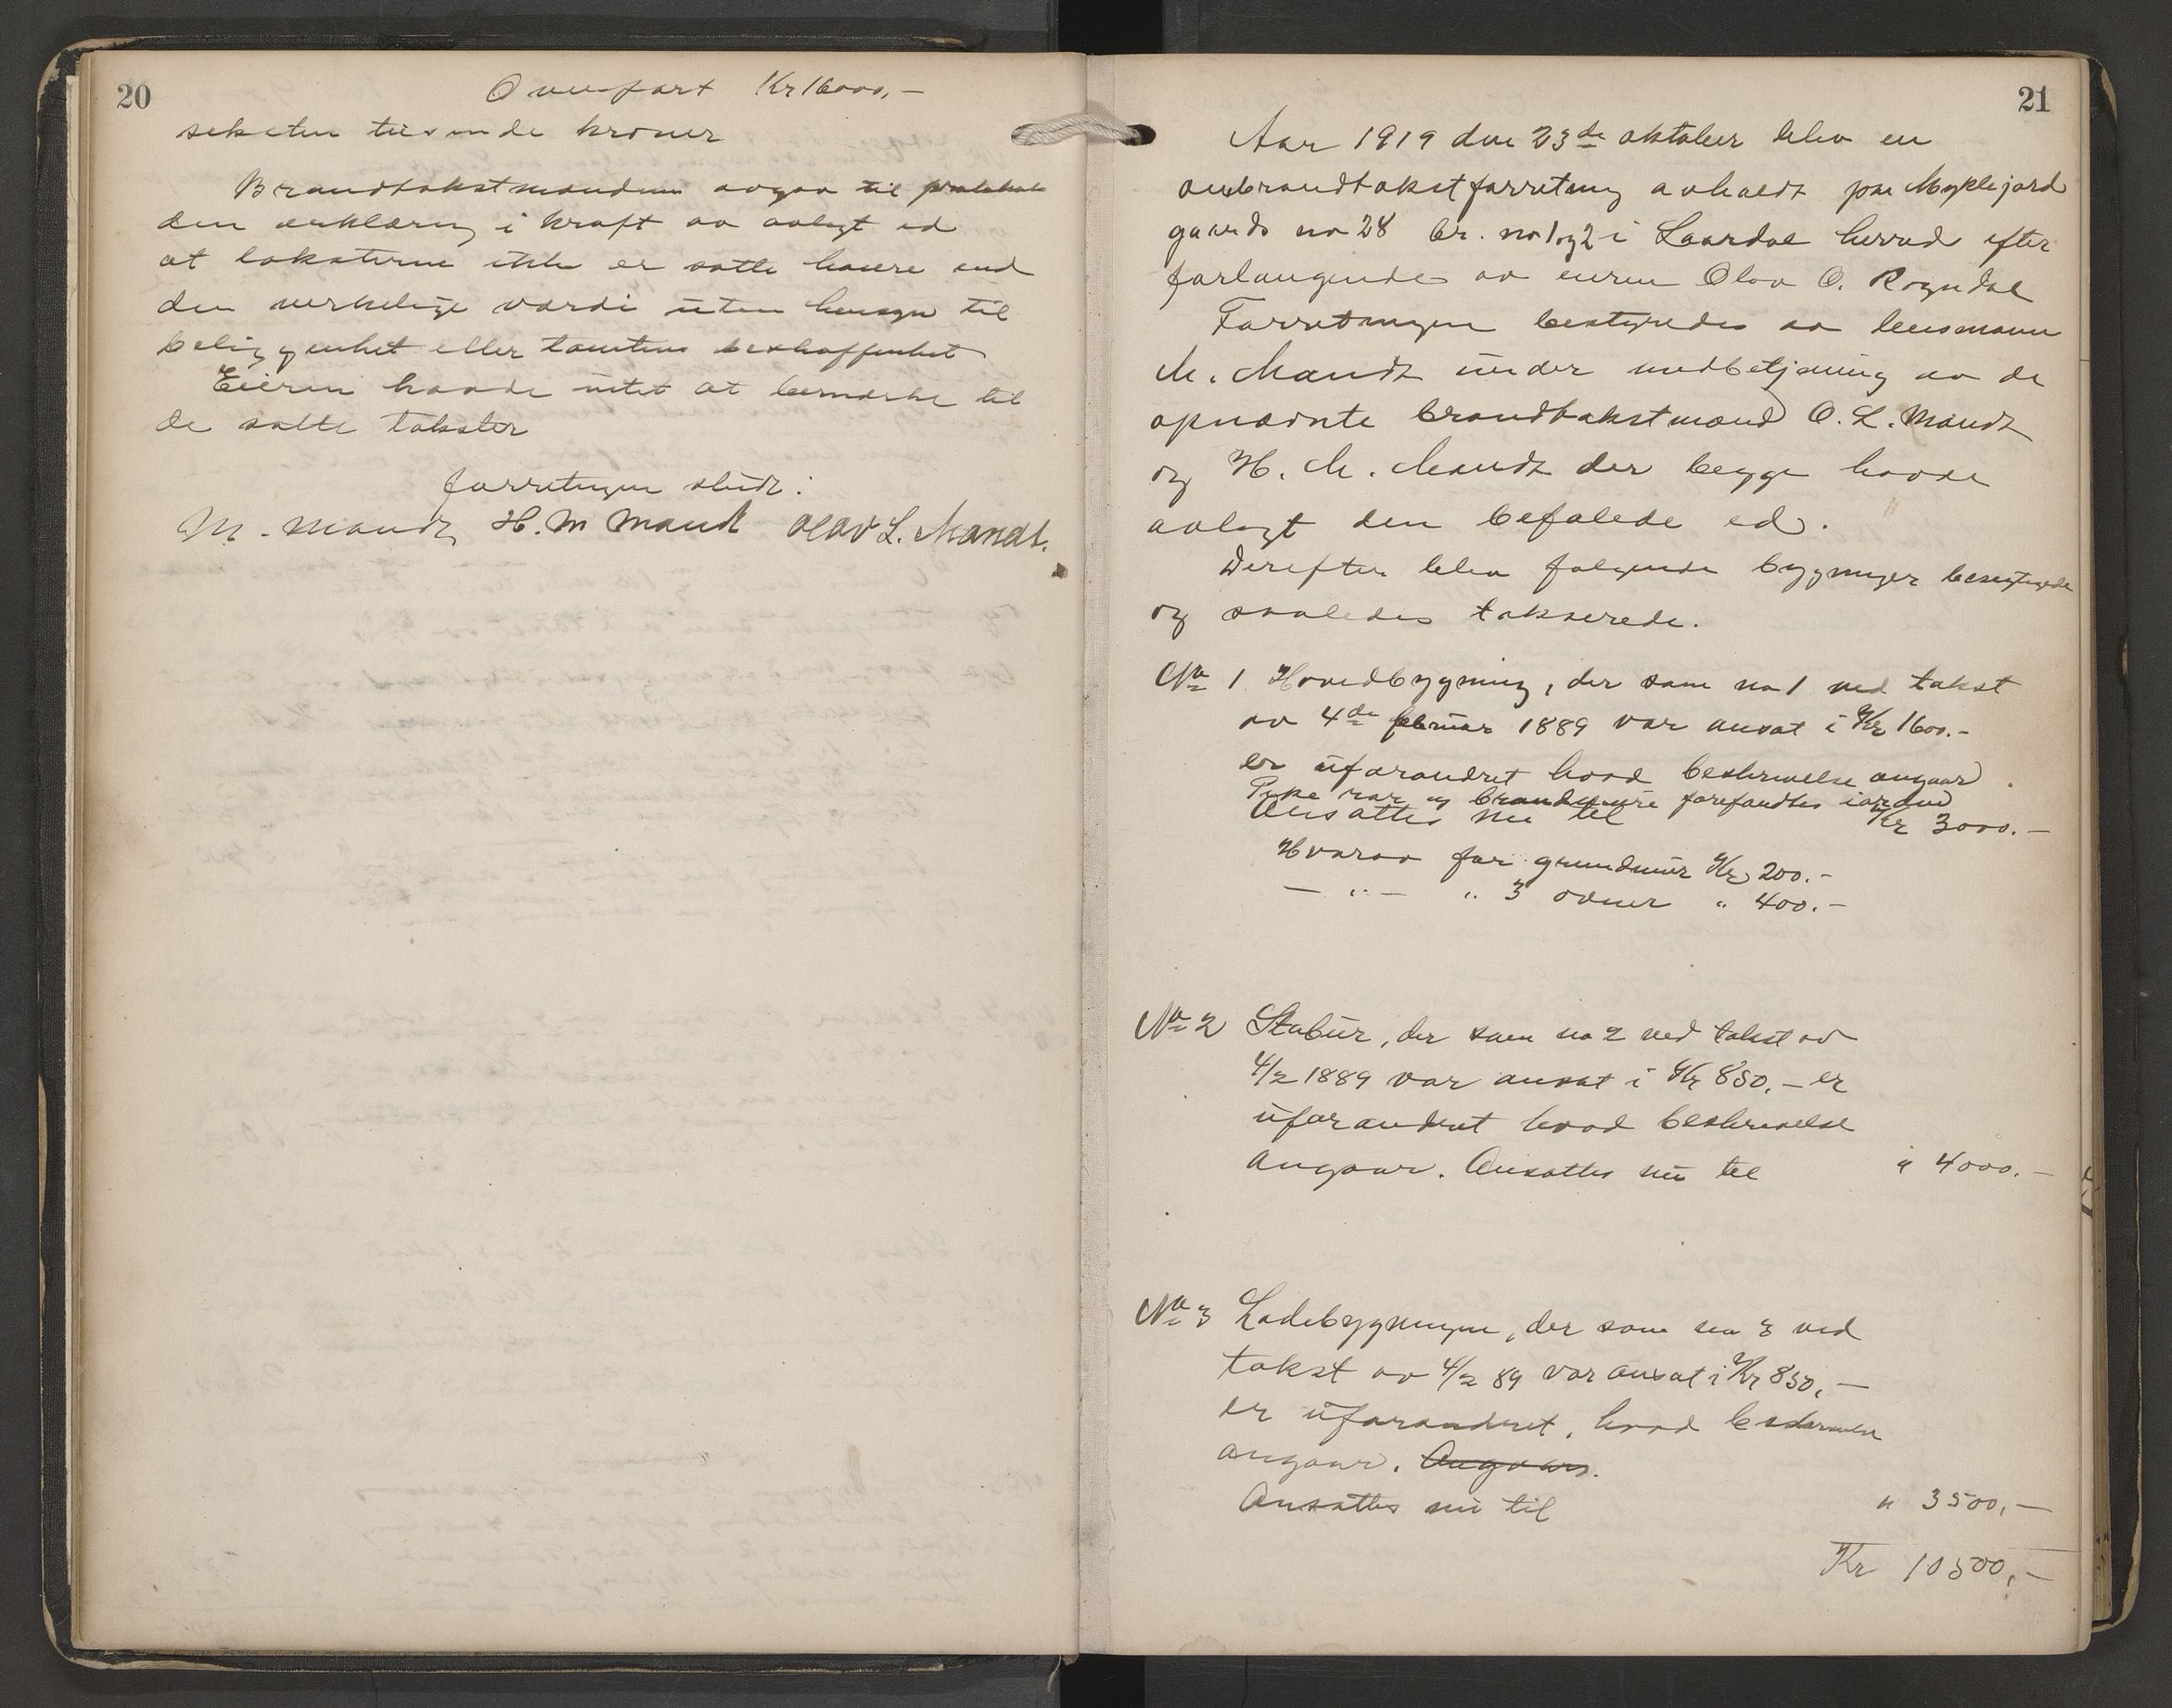 20
Overført Kr 16000,-
seksten tusinde kroner
Brandtakstmændene avgav til protokol
den erklæring i kraft av avlagt ed
at taksterne ikke er satte høiere end
den verkelige værdi uten hensyn til
beliggenhet eller tomtens beskaffenhet
Eieren havde intet at bemærke til
de satte takster
forretningen slut:
M. Mandt H. M Mandt Olav L. Mandt.
21
Aar 1919 den 23de oktober blev en
ombrandtakstforretning avholdt paa Myklejord
gaards no 28 br. no 1 og 2 i Laardal herred efter
forlangende av eieren Olav O. Rogndal
Forretningen bestyredes av lensmann
M. Mandt under medbetjening av de
opnævnte brandtakstmænd O. L. Mandt
og H. M. Mandt der begge havde
avlagt den befalede ed.
Derefter blev følgende bygninger besigtigede
og saaledes takserede.
No 1 Hovedbygning, der som no 1 ved takst
av 4de februar 1889 var ansat i Kr 1600.-
er uforandret hvad beskrivelse angaar
Pipe rør og brandmure forefandtes i orden
Ansattes nu til Kr 3000.-
Hvorav for grundmur Kr 200.-
— " — " 3 ovner " 400.-
No 2 Stabur, der som no 2 ved takst av
4/2 1889 var ansat i Kr 850.- er
uforandret hvad beskrivelse
angaar. Ansattes nu til " 4000.-
No 3 Ladebygningen, der som no 3 ved
takst av 4/2 89 var ansat i Kr 850,-
er uforandret, hvad beskrivelse
angaar. Angaar.
Ansattes nu til " 3500,-
Kr 10500,-